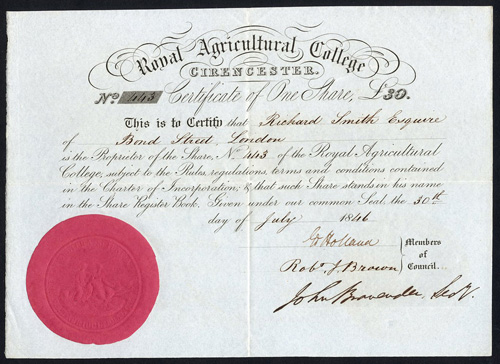 Royal Agricultural College
CIRENCESTER.
No 443 Certificate of One Share, £30.
This is to Certify that Richard Smith Esquire
of Bond Street London
is the Proprietor of the Share, No 443 of the Royal Agricultural
College, subject to the Rules, regulations, terms and conditions contained
in the Charter of Incorporation; & that such Share stands in his name
in the Share Register Book. Given under our common Seal, the 30th
day of July 1846
Ed Holland
Robt. J. Brown
Members of Council.
John Bravender, Secy.